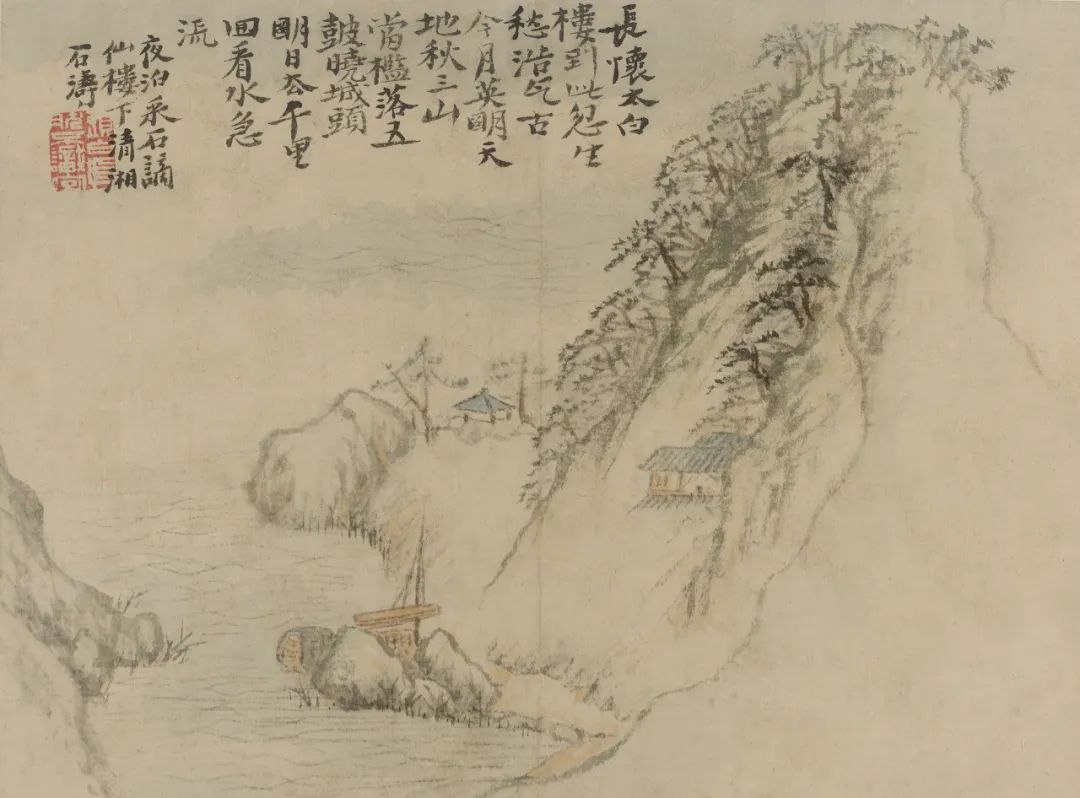 長懷太白
樓到此忽生
愁浩气古
今月英朙天
地秋三山
當檻落五
皷曉城頭
朙日各千里
回看水急
流
夜泊采石謫
仙樓下清湘
石濤